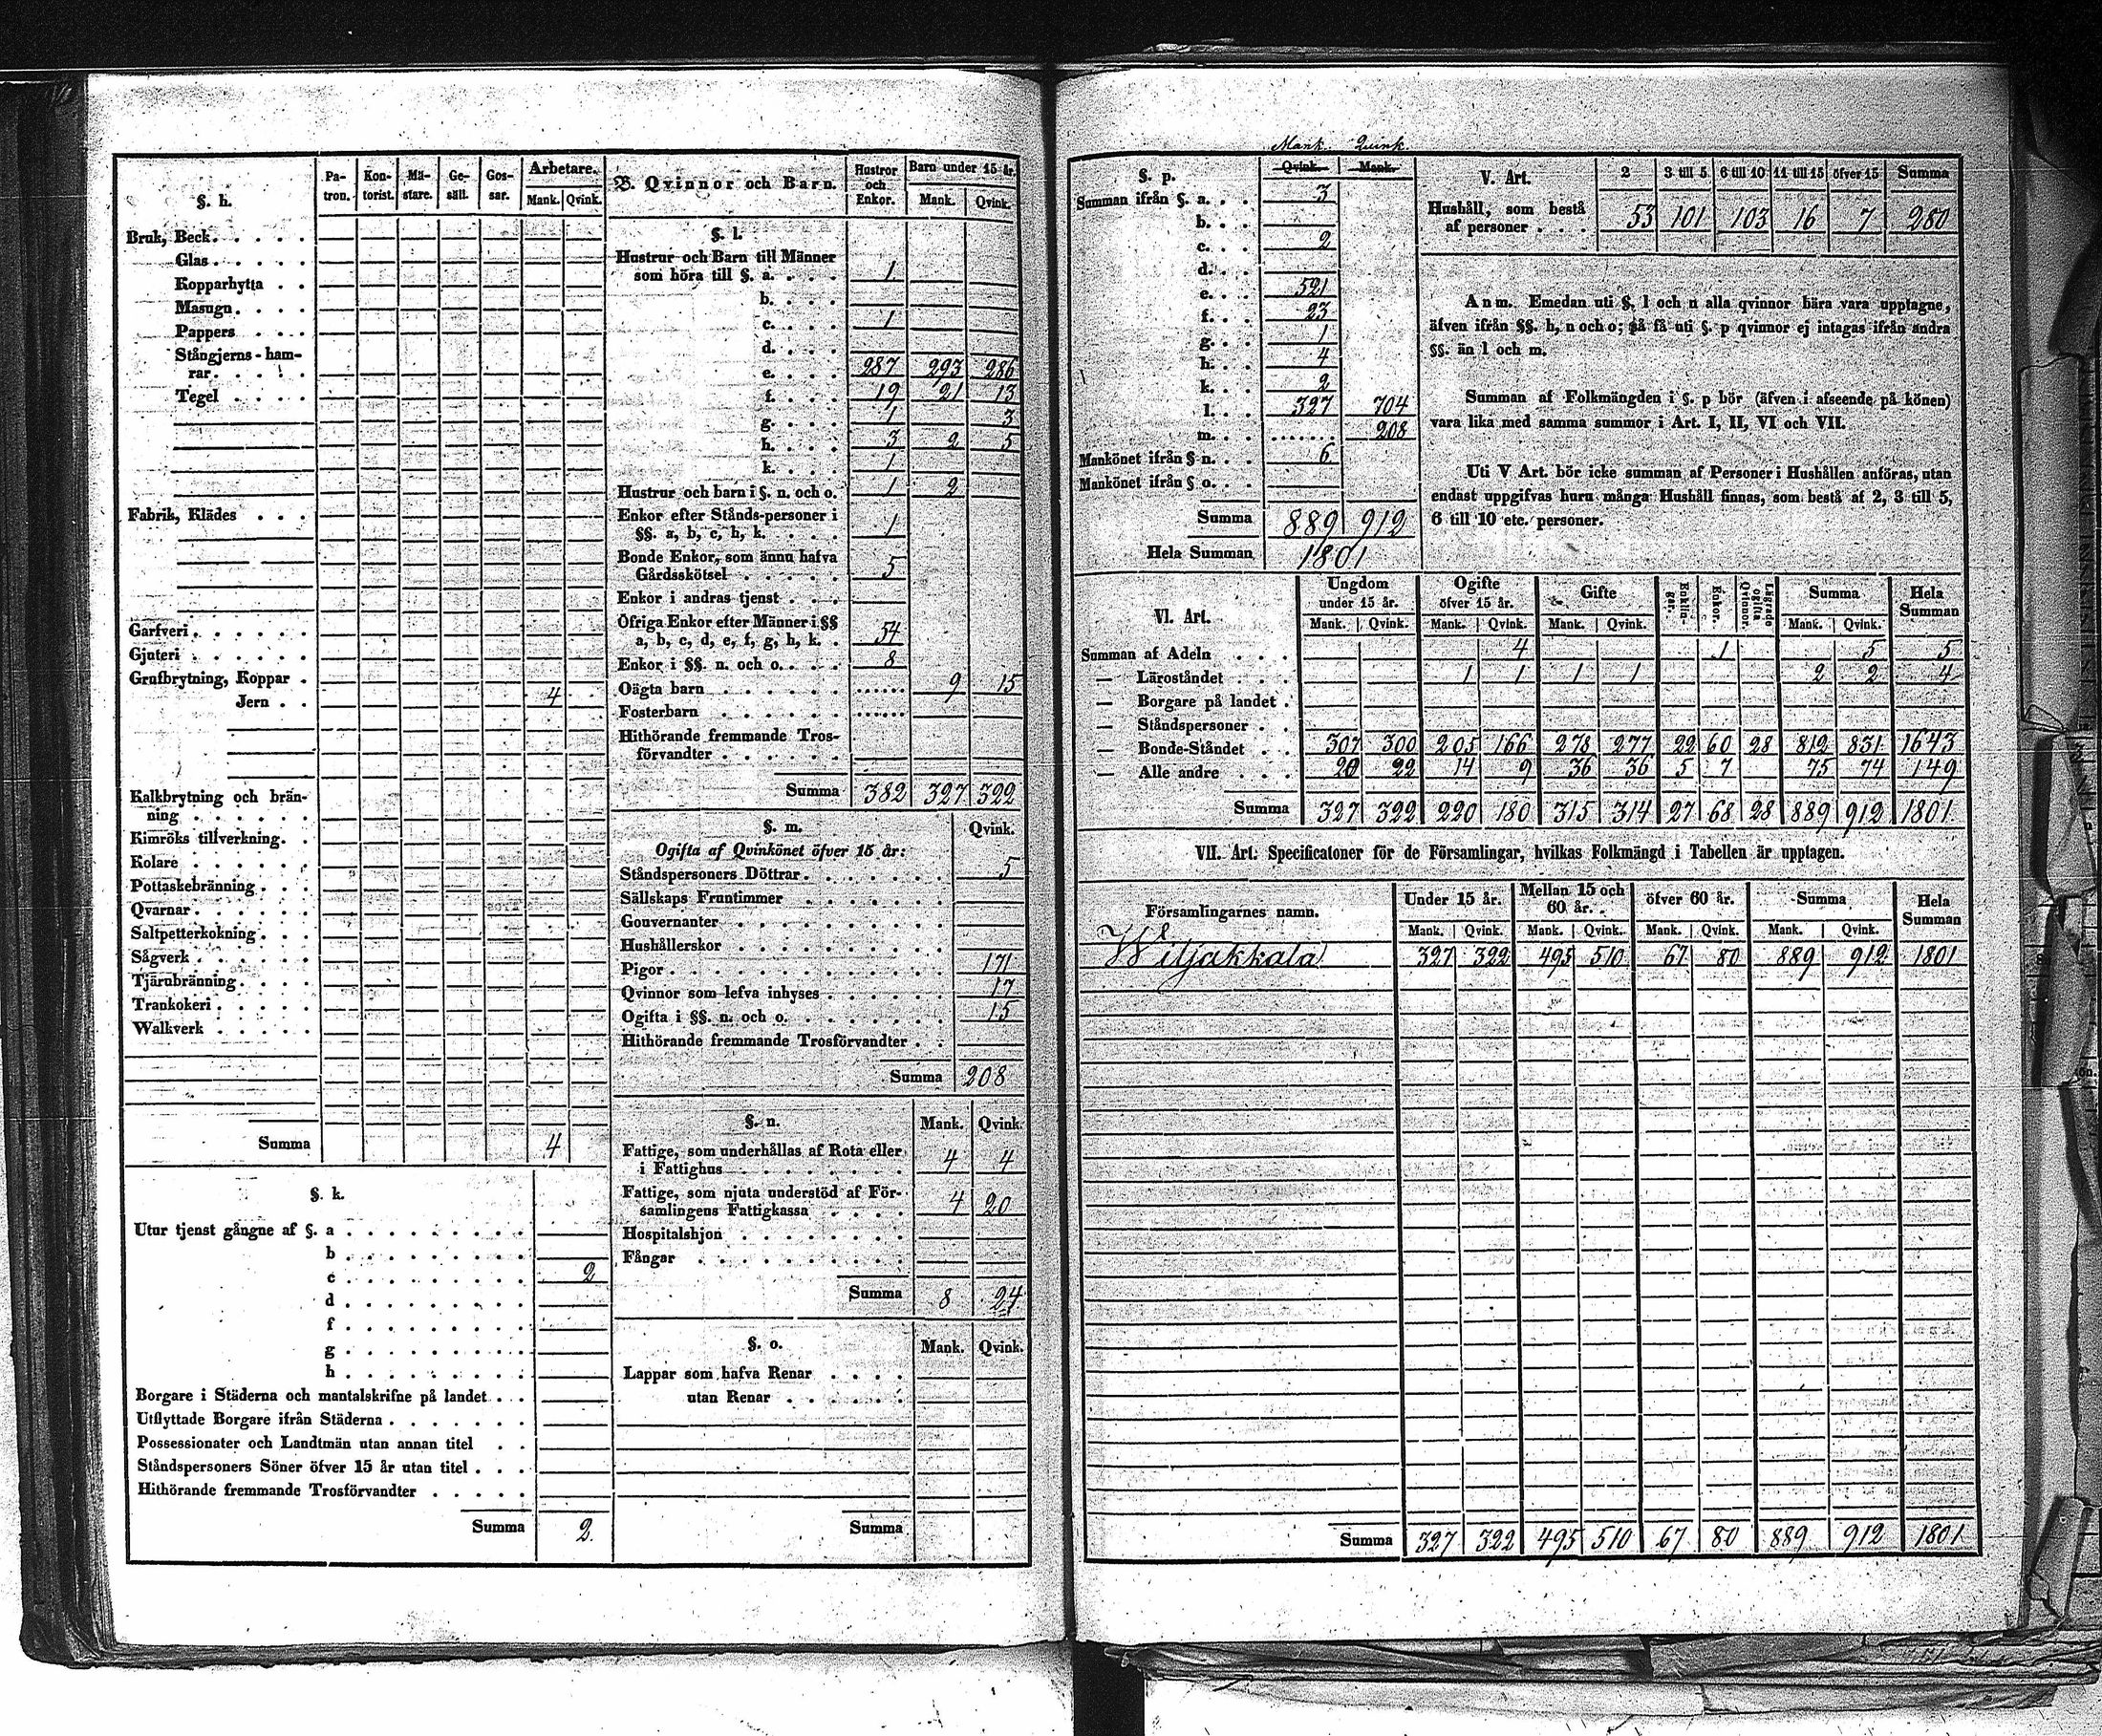 §. h.
Pa-
tron.
Kon-
torist.
Mä-
stare.
Ge-
säll.
Gos-
sar.
Arbetare.
Mank. Qvink.
Bruk, Beck
Glas
Kopparhytta
Masugn
Pappers
Stångjerns-ham-
rar
Tegel
Fabrik, Klädes
Garfveri
Gjuteri
Grufbrytning, Koppar
Jern 4
Kalkbrytning och brän-
ning
Kimröks tillverkning
Kolare
Pottaskebränning
Qvarnar
Saltpetterkokning
Sågverk
Tjärubränning
Trankokeri
Walkverk
Summa 4
§. k.
Utur tjenst gångne af §. a
b
c 2
d
f
g
h
Borgare i Städerna och mantalskrifne på landet
Utflyttade Borgare ifrån Städerna
Possessionater och Landtmän utan annan titel
Ståndspersoners Söner öfver 15 år utan titel
Hithörande fremmande Trosförvandter
Summa 2.
B. Qvinnor och Barn.
Hustror
och
Enkor.
Barn under 15 år.
Mank. Qvink.
§. l.
Hustrur och Barn till Männer
som höra till §. a. 1
b.
c. 1
d.
e. 287 293 286
f. 19 21 13
g. 1 3
h. 3 2 5
k. 1
Hustrur och barn i §. n. och o. 1 2
Enkor efter Stånds-personer i
§§. a, b, c, h, k. 1
Bonde Enkor, som ännu hafva
Gårdsskötsel 5
Enkor i andras tjenst
Öfriga Enkor efter Männer i §§
a, b, c, d, e, f, g, h, k. 54
Enkor i §§. n. och o. 8
Oägta barn 9 15
Fosterbarn
Hithörande fremmande Tros-
förvandter
Summa 382 327 322
§. m. Qvink.
Ogifta af Qvinkönet öfver 15 år:
Ståndspersoners Döttrar 5
Sällskaps Fruntimmer
Gouvernanter
Hushållerskor
Pigor 171
Qvinnor som lefva inhyses 17
Ogifta i §§. n. och o. 15
Hithörande fremmande Trosförvandter
Summa 208
§. n. Mank. Qvink.
Fattige, som underhållas af Rota eller
i Fattighus 4 4
Fattige, som njuta understöd af För-
samlingens Fattigkassa 4 20
Hospitalshjon
Fångar
Summa 8 24
§. o. Mank. Qvink.
Lappar som hafva Renar
utan Renar
Summa
Mank. Quink.
§. p. Qvink. Mank.
Summan ifrån §. a. 3
b.
c. 2
d.
e. 521
f. 23
g. 1
h. 4
k. 2
l. 327 704
m. 208
Mankönet ifrån § n. 6
Mankönet ifrån § o.
Summa 889 912
Hela Summan 1801
V. Art. 2 3 till 5 6 till 10 11 till 15 öfver 15 Summa
Hushåll, som bestå
af personer 53 101 103 16 7 280
Anm. Emedan uti §. l och n alla qvinnor böra vara upptagne,
äfven ifrån §§. h, n och o; så få uti §. p qvinnor ej intagas ifrån andra
§§. än l och m.
Summan af Folkmängden i §. p bör (äfven i afseende på könen)
vara lika med samma summor i Art. I, II, VI och VII.
Uti V Art. bör icke summan af Personer i Hushållen anföras, utan
endast uppgifvas huru många Hushåll finnas, som bestå af 2, 3 till 5,
6 till 10 etc. personer.
VI. Art.
Ungdom
under 15 år.
Ogifte
öfver 15 år.
Gifte
Enklin-
gar.
Enkor.
Lägrade
ogifta
Qvinnor.
Summa
Hela
Summan
Mank. Qvink. Mank. Qvink. Mank. Qvink. Mank. Qvink.
Summan af Adeln 4 1 5 5
— Läroståndet 1 1 1 1 2 2 4
— Borgare på landet
— Ståndspersoner
— Bonde-Ståndet 307 300 205 166 278 277 22 60 28 812 831 1643
— Alle andre 20 22 14 9 36 36 5 7 75 74 149
Summa 327 322 220 180 315 314 27 68 28 889 912 1801
VII. Art. Specificatoner för de Församlingar, hvilkas Folkmängd i Tabellen är upptagen.
Församlingarnes namn.
Under 15 år.
Mellan 15 och
60 år.
öfver 60 år.
Summa
Hela
Summan
Mank. Qvink. Mank. Qvink. Mank. Qvink. Mank. Qvink.
Wiljakkala 327 322 495 510 67 80 889 912 1801
Summa 327 322 495 510 67 80 889 912 1801